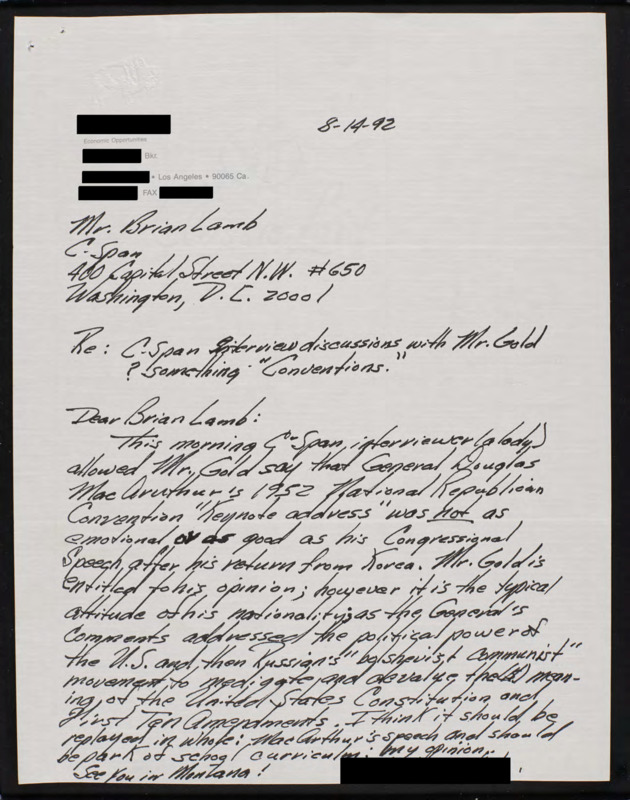 8-14-92
Economic Opportunities
Bkr.
• Los Angeles • 90065 Ca.
FAX
Mr. Brian Lamb
C-Span
400 Capital Street N.W. #650
Washington, D.C. 20001
Re: C-Span Interview discussions with Mr. Gold
? something "Conventions."
Dear Brian Lamb:
This morning C-Span, interviewer (a lady)
allowed Mr. Gold say that General Douglas
Mac Aruthur's 1952 National Republican
Convention "Keynote address" was not as
emotional or as good as his Congressional
Speech, after his return from Korea. Mr. Gold is
entitled to his opinion; however it is the typical
attitude of his nationality; as the General's
Comments addressed the political power of
the U.S. and then Russian's "bolshevist communist"
movement to and devalue the mean-
ing of the United States Constitution and
First Ten Amendments. I think it should be
replayed in whole: MacArthur's speech and should
be park of school curriculum: my opinion.
See you in Montana!